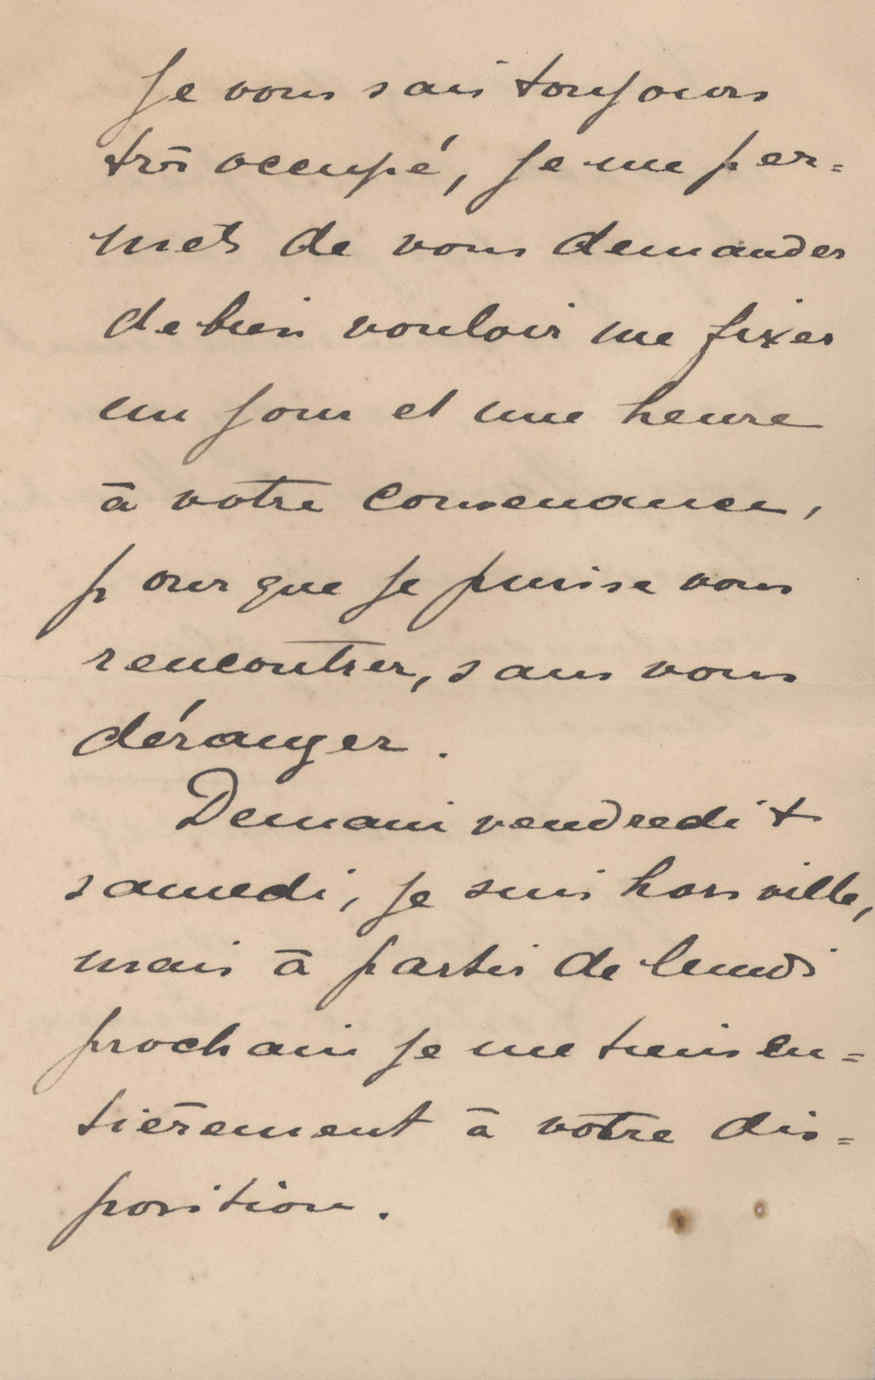 Je vous sais toujours
très occupé, je me per=
mets de vous demander
de bien vouloir me fixer
un jour et une heure
à votre convenance,
pour que je puisse vous
rencontrer, sans vous
déranger.
Demain vendredi &
samedi, je suis hors ville,
mais à partir de lundi
prochain je me tiens en=
tièrement à votre dis=
position.